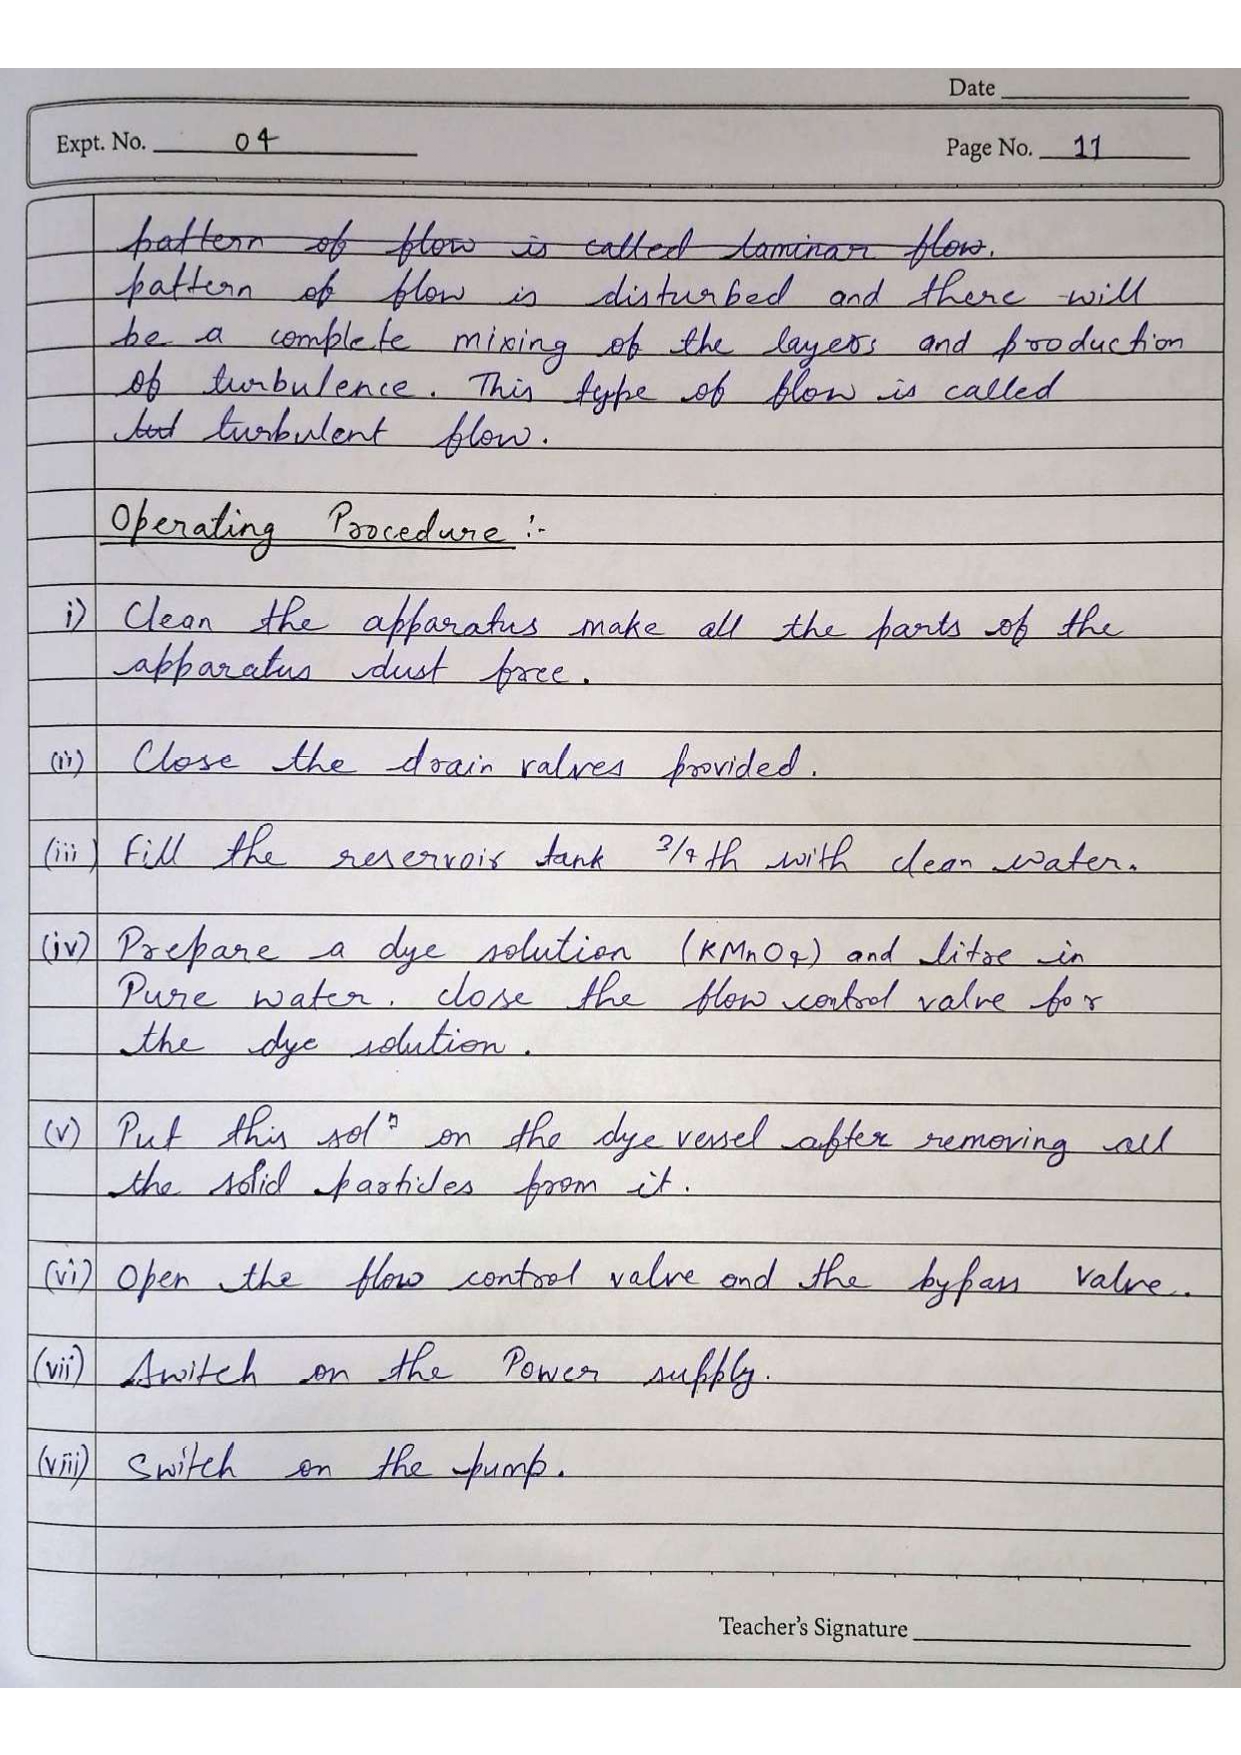 Date
Expt. No. 04
Page No. 11
pattern of flow is called laminar flow.
pattern of flow is disturbed and there will
be a complete mixing of the layers and production
of turbulence. This type of flow is called
turbulent flow.
Operating Procedure :-
i) Clean the apparatus make all the parts of the
apparatus dust free.
(ii) Close the drain valves provided.
(iii) Fill the reservoir tank 3/4th with clean water.
(iv) Prepare a dye solution (KMnO4) and litre in
Pure water. close the flow control valve for
the dye solution.
(v) Put this solⁿ on the dye vessel after removing all
the solid particles from it.
(vi) Open the flow control valve and the bypass valve.
(vii) Switch on the Power supply.
(viii) Switch on the pump.
Teacher's Signature